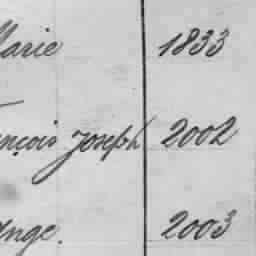 Marie 1833
ançois Joseph 2002
Ange. 2003